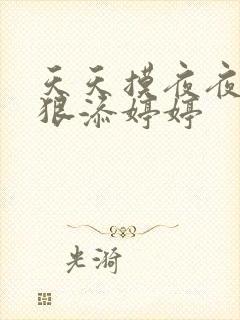 天天摸夜夜
狠添婷婷
光漪